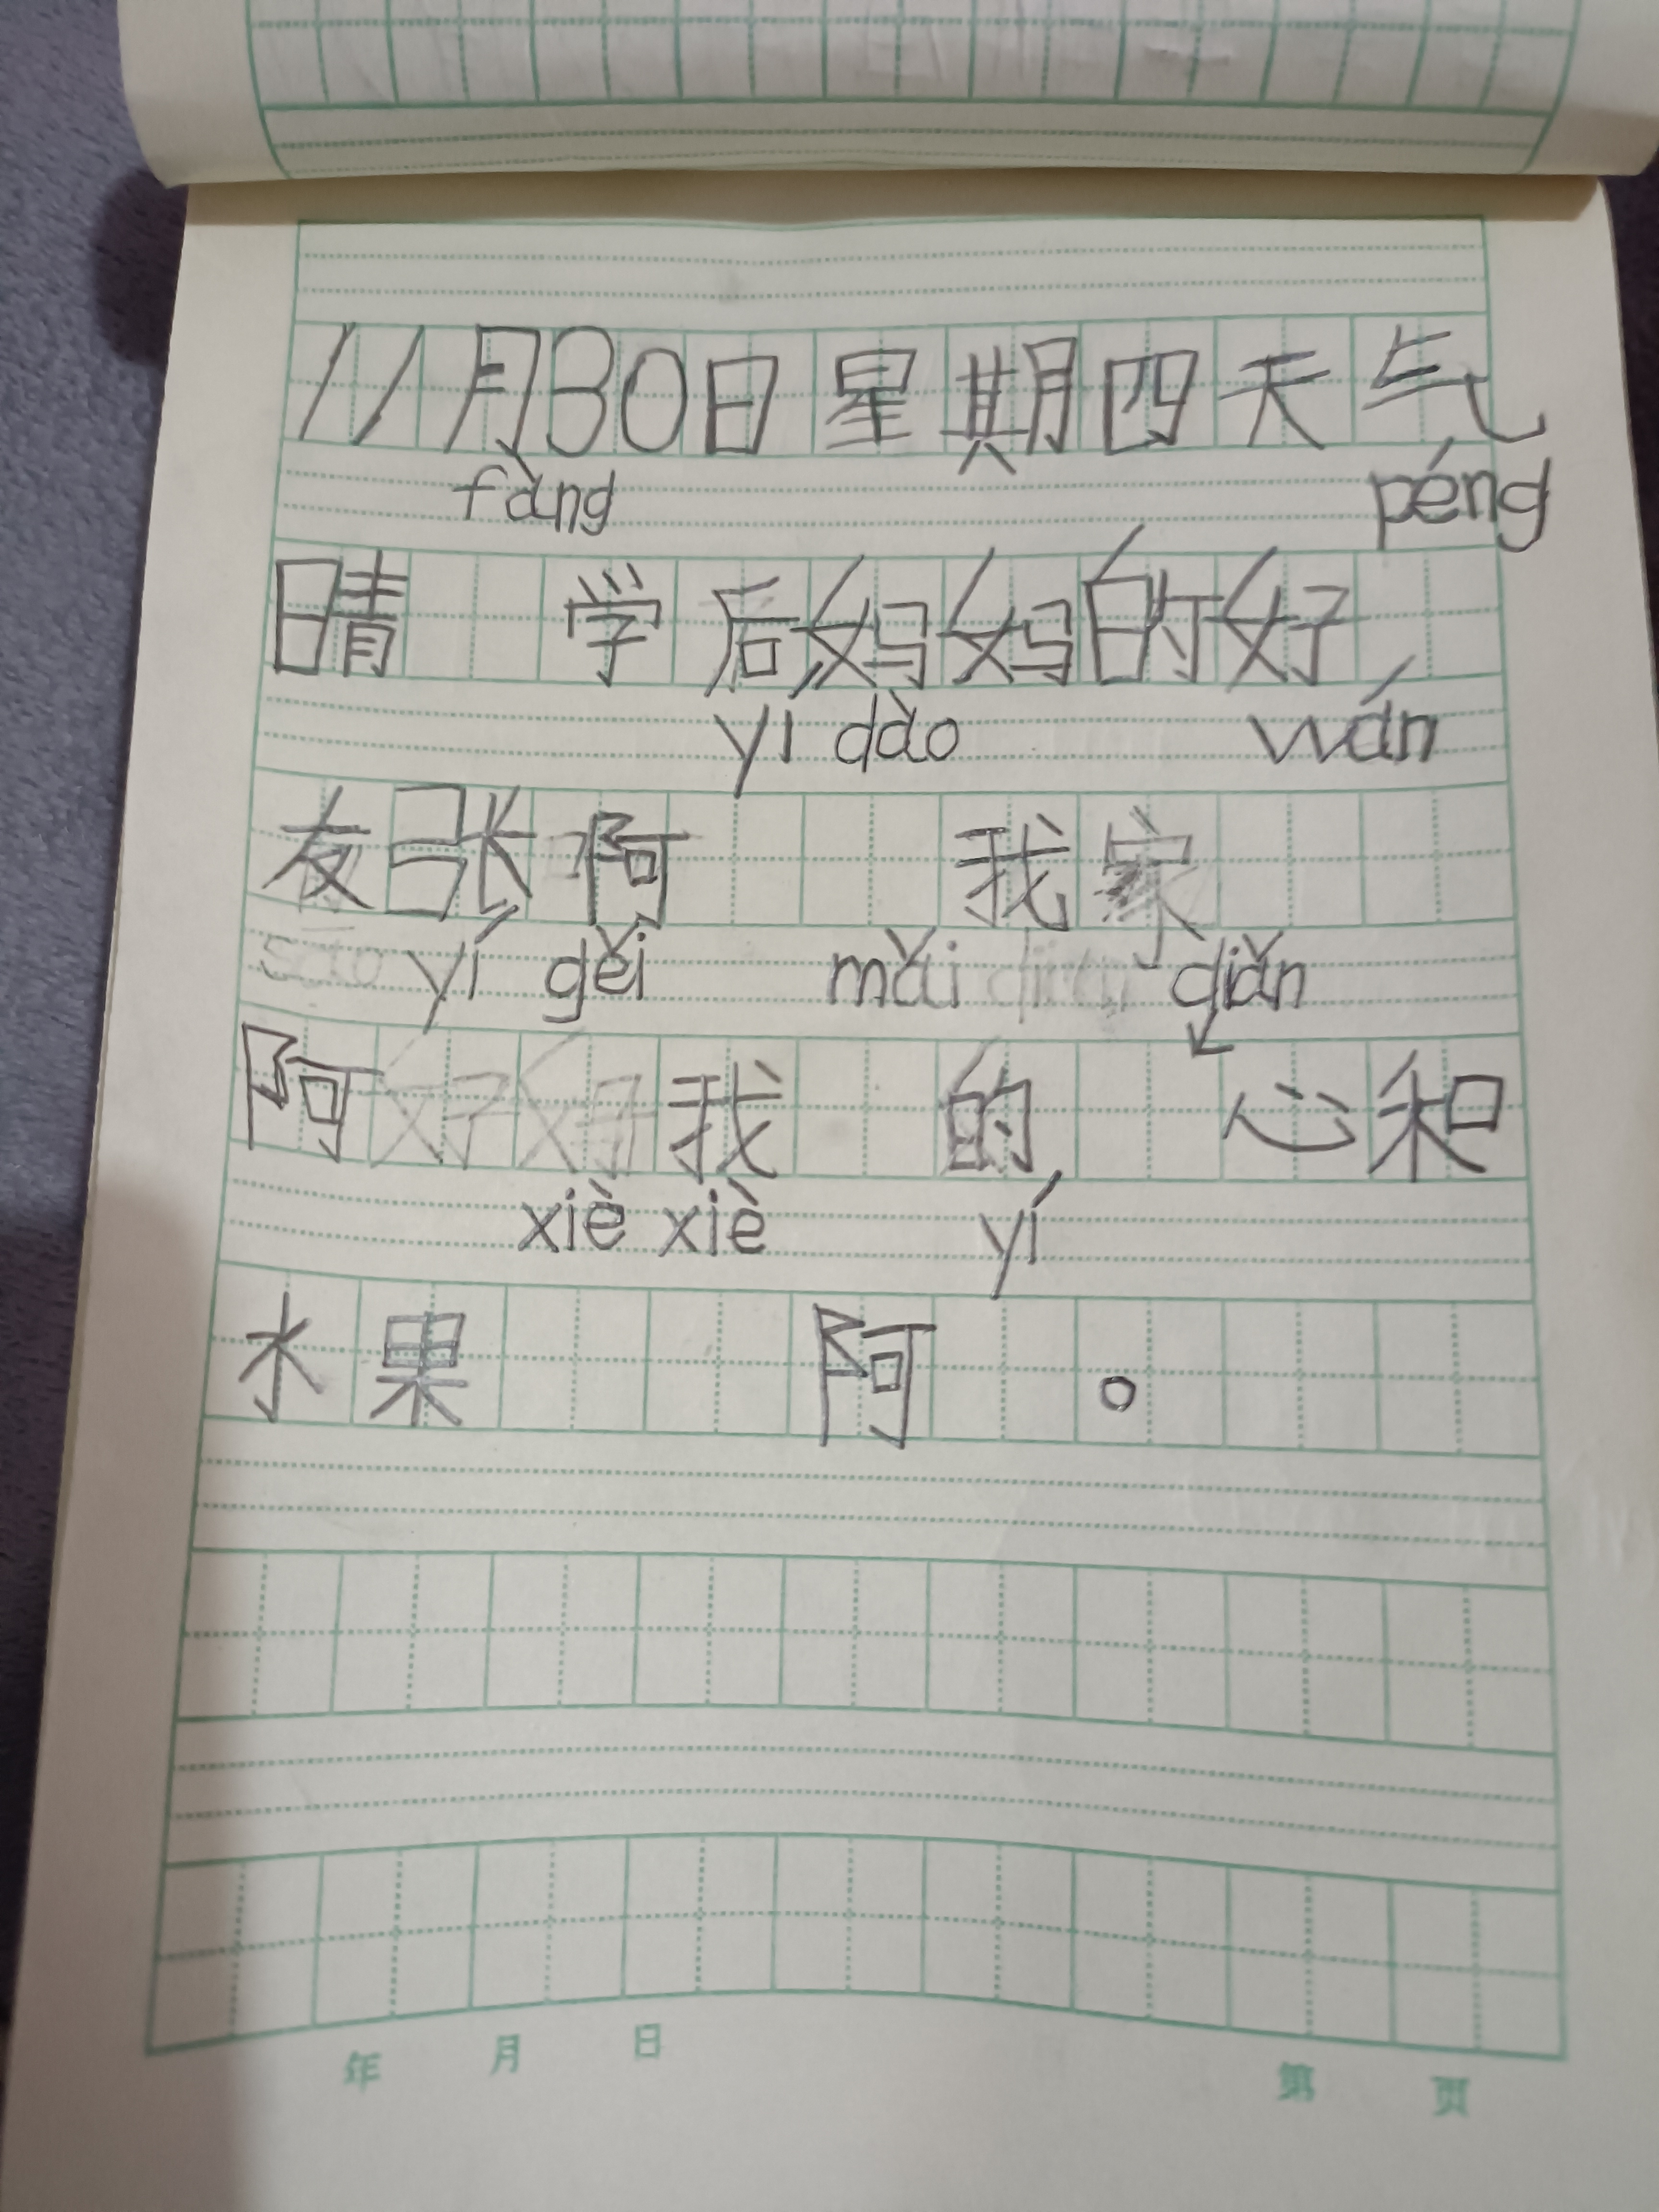 11月30日星期四天气
fàng péng
晴 学后妈妈的好
yí dào wán
友张阿 我家
yí gěi mǎi diǎn
阿好好我 的 心和
xiè xiè yí
水果 阿 。
年 月 日 第 页